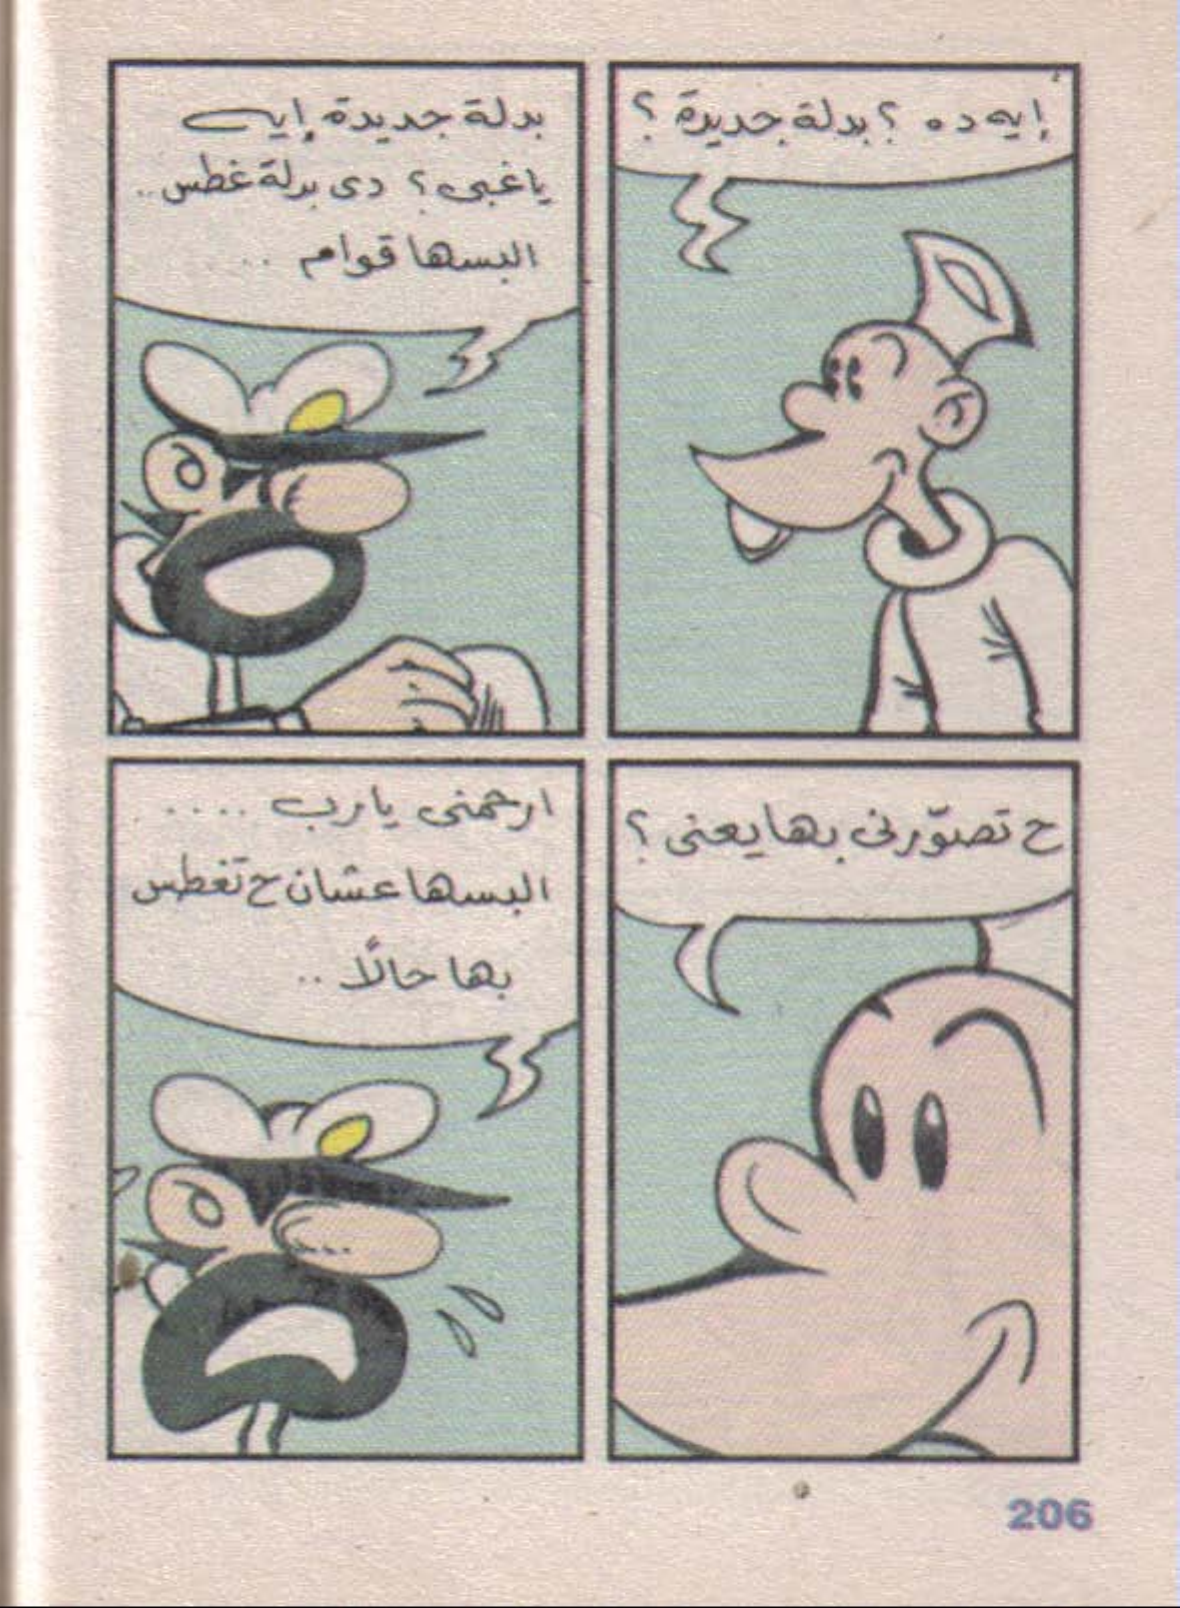 إيه ده ؟ بدلة جديدة ؟
بدلة جديدة إيه
ياغبى ؟ دى بدلة غطس ..
البسها قوام ..
ح تصوّرنى بها يعنى ؟
ارحمنى يارب ....
البسها عشان ح تغطس
بها حالًا ..
206